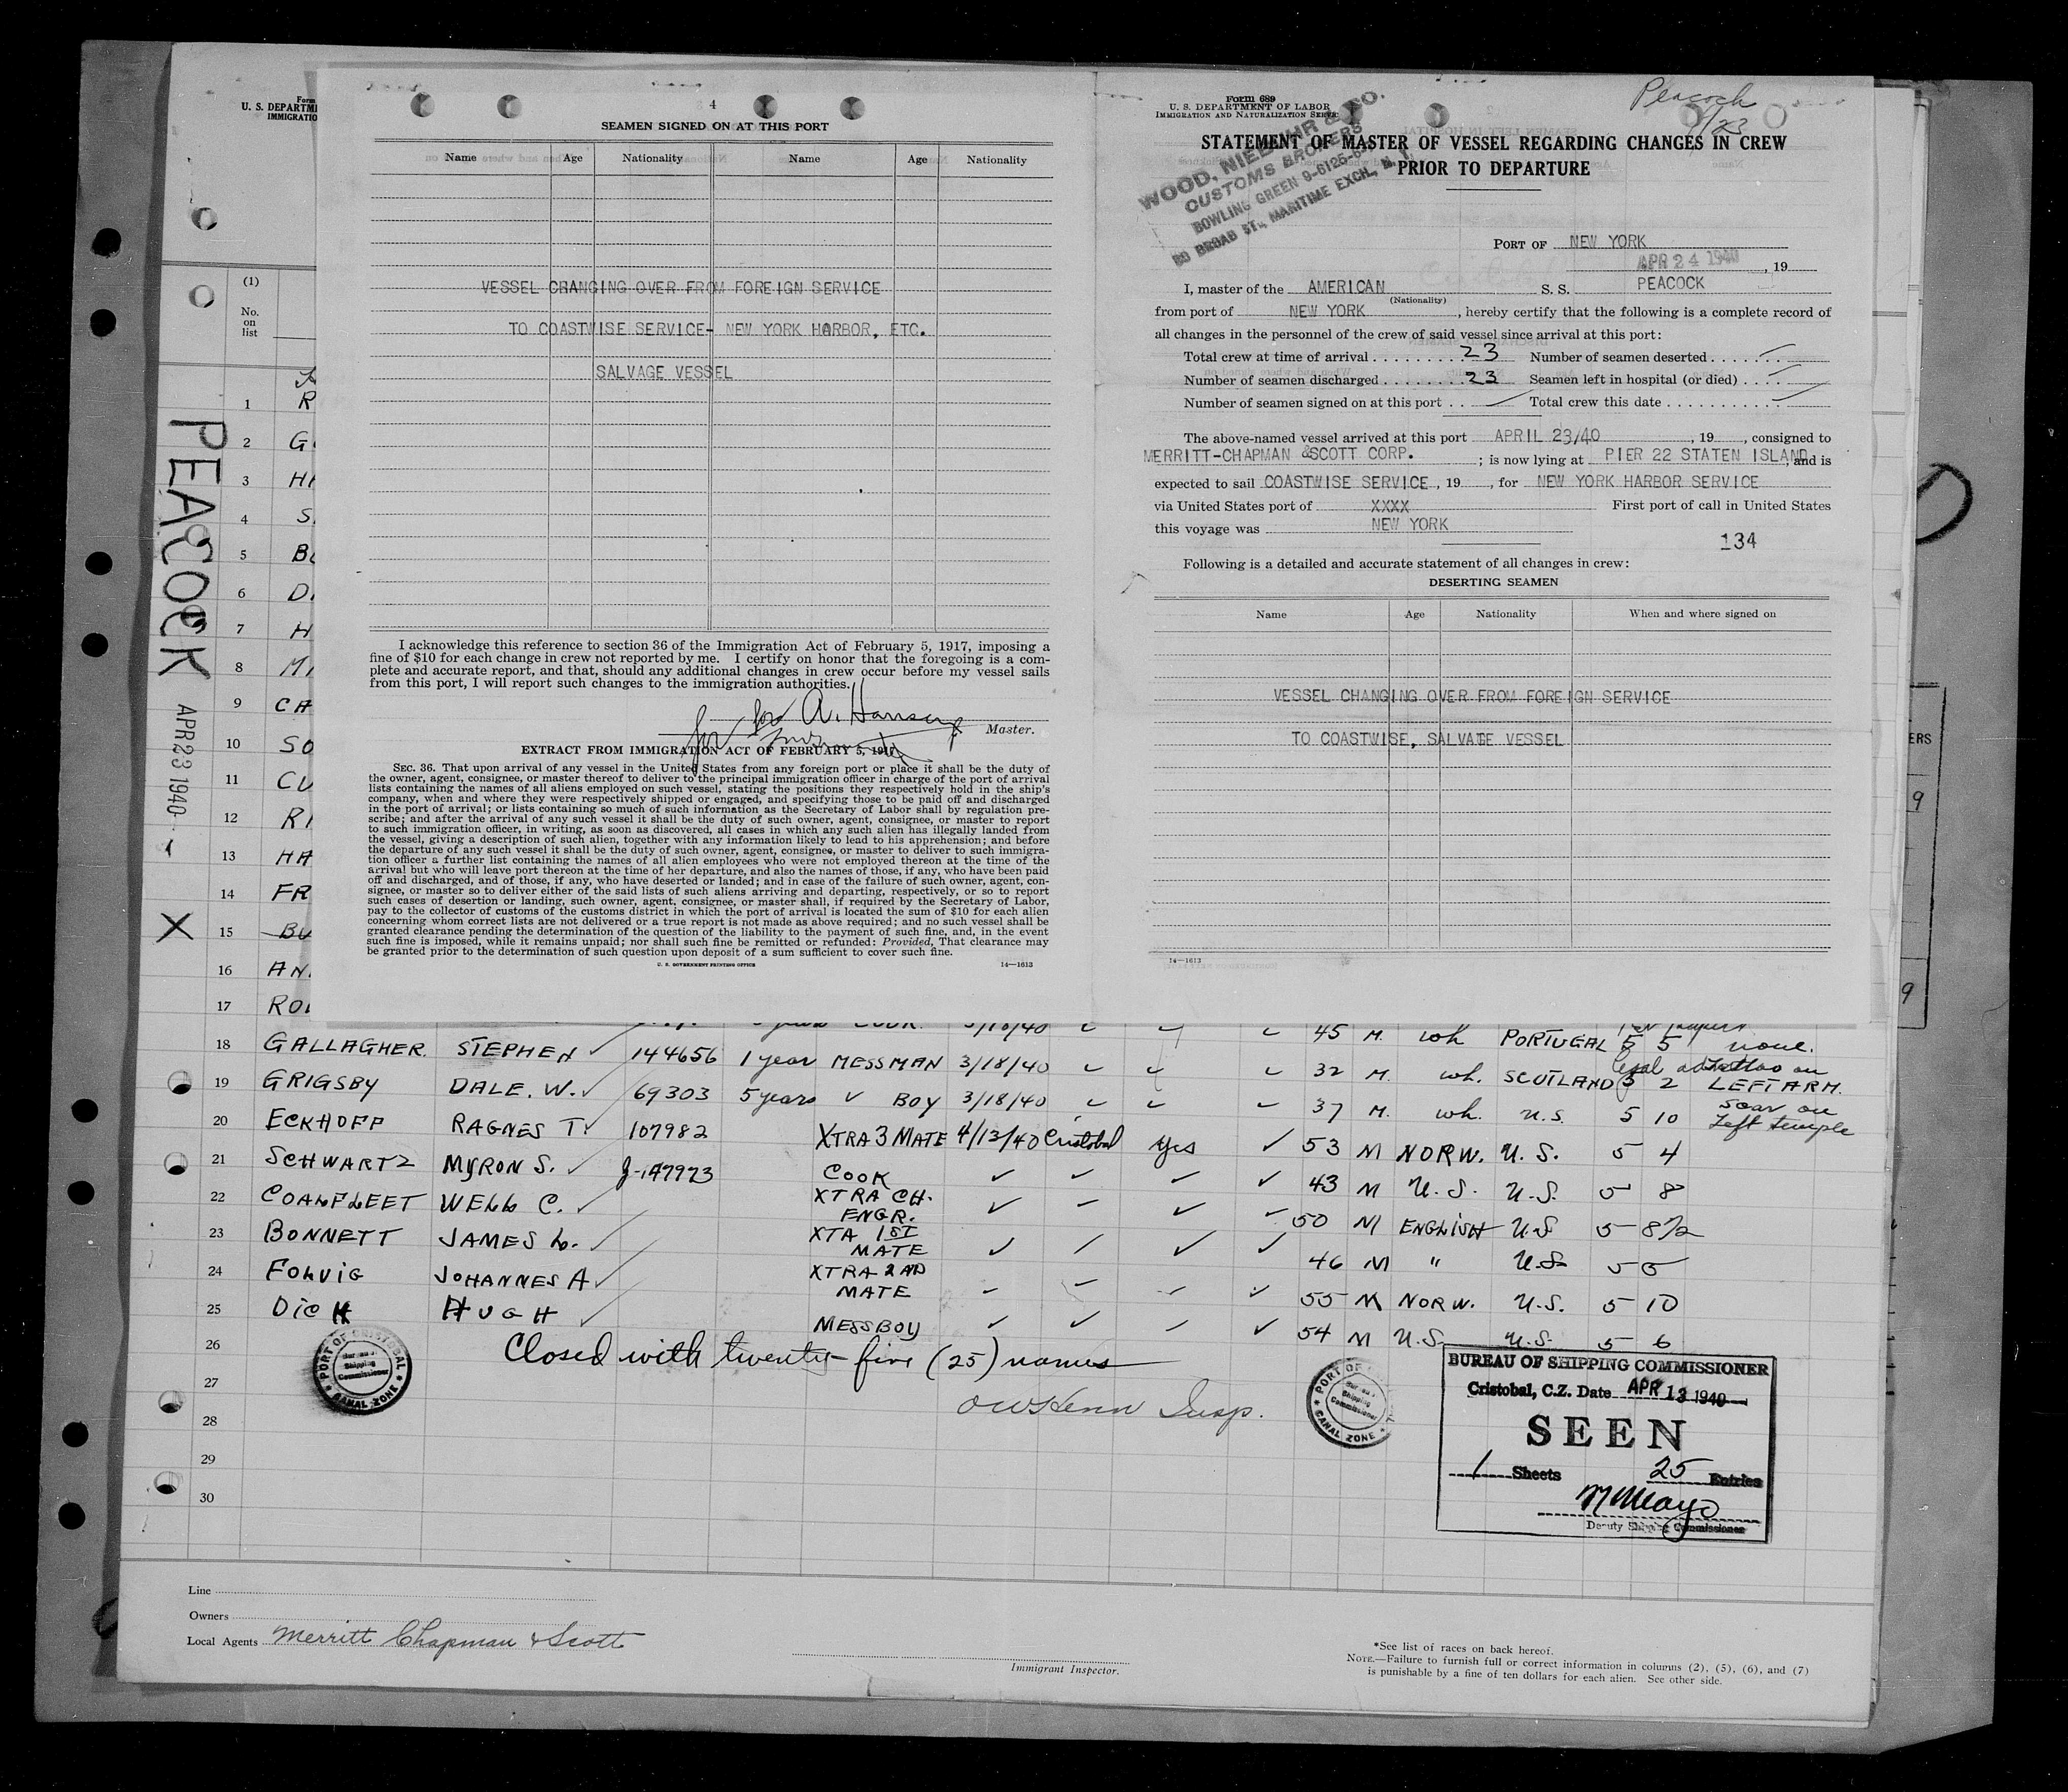 Form
U. S. DEPARTM
IMMIGRATIO
(1)
No.
on
list
PEACOCK APR 23 1940
1 R
2 G
3 HA
4 S
5 B
6 D
7 H
8 M
9 CA
10 SO
11 CU
12 RI
13 HA
14 FR
X 15 BU
16 AN
17 RO
4
SEAMEN SIGNED ON AT THIS PORT
Name Age Nationality Name Age Nationality
VESSEL CHANGING OVER FROM FOREIGN SERVICE
TO COASTWISE SERVICE- NEW YORK HARBOR, ETC.
SALVAGE VESSEL
I acknowledge this reference to section 36 of the Immigration Act of February 5, 1917, imposing a
fine of $10 for each change in crew not reported by me. I certify on honor that the foregoing is a com-
plete and accurate report, and that, should any additional changes in crew occur before my vessel sails
from this port, I will report such changes to the immigration authorities.
A. Hansen
Master.
EXTRACT FROM IMMIGRATION ACT OF FEBRUARY 5, 1917
SEC. 36. That upon arrival of any vessel in the United States from any foreign port or place it shall be the duty of
the owner, agent, consignee, or master thereof to deliver to the principal immigration officer in charge of the port of arrival
lists containing the names of all aliens employed on such vessel, stating the positions they respectively hold in the ship's
company, when and where they were respectively shipped or engaged, and specifying those to be paid off and discharged
in the port of arrival; or lists containing so much of such information as the Secretary of Labor shall by regulation pre-
scribe; and after the arrival of any such vessel it shall be the duty of such owner, agent, consignee, or master to report
to such immigration officer, in writing, as soon as discovered, all cases in which any such alien has illegally landed from
the vessel, giving a description of such alien, together with any information likely to lead to his apprehension; and before
the departure of any such vessel it shall be the duty of such owner, agent, consignee, or master to deliver to such immigra-
tion officer a further list containing the names of all alien employees who were not employed thereon at the time of the
arrival but who will leave port thereon at the time of her departure, and also the names of those, if any, who have been paid
off and discharged, and of those, if any, who have deserted or landed; and in case of the failure of such owner, agent, con-
signee, or master so to deliver either of the said lists of such aliens arriving and departing, respectively, or so to report
such cases of desertion or landing, such owner, agent, consignee, or master shall, if required by the Secretary of Labor,
pay to the collector of customs of the customs district in which the port of arrival is located the sum of $10 for each alien
concerning whom correct lists are not delivered or a true report is not made as above required; and no such vessel shall be
granted clearance pending the determination of the question of the liability to the payment of such fine, and, in the event
such fine is imposed, while it remains unpaid; nor shall such fine be remitted or refunded: Provided, That clearance may
be granted prior to the determination of such question upon deposit of a sum sufficient to cover such fine.
U. S. GOVERNMENT PRINTING OFFICE 14—1613
Peacock
4/23
Form 689
U. S. DEPARTMENT OF LABOR
IMMIGRATION AND NATURALIZATION SERVICE
WOOD, NIEBUHR & CO.
CUSTOMS BROKERS
BOWLING GREEN 9-6125-6-7
80 BROAD ST., MARITIME EXCH., N. Y.
STATEMENT OF MASTER OF VESSEL REGARDING CHANGES IN CREW
PRIOR TO DEPARTURE
PORT OF NEW YORK
APR 24 1940, 19
I, master of the AMERICAN S. S. PEACOCK
(Nationality)
from port of NEW YORK, hereby certify that the following is a complete record of
all changes in the personnel of the crew of said vessel since arrival at this port:
Total crew at time of arrival 23 Number of seamen deserted
Number of seamen discharged 23 Seamen left in hospital (or died)
Number of seamen signed on at this port Total crew this date
The above-named vessel arrived at this port APRIL 23/40, 19, consigned to
MERRITT-CHAPMAN &SCOTT CORP. ; is now lying at PIER 22 STATEN ISLAND, and is
expected to sail COASTWISE SERVICE, 19, for NEW YORK HARBOR SERVICE
via United States port of XXXX First port of call in United States
this voyage was NEW YORK
134
Following is a detailed and accurate statement of all changes in crew:
DESERTING SEAMEN
Name Age Nationality When and where signed on
VESSEL CHANGING OVER FROM FOREIGN SERVICE
TO COASTWISE, SALVAGE VESSEL
14—1613
ERS
9
9
COOK 3/18/40 45 M. wh PORTUGAL 5 5 none.
18 GALLAGHER. STEPHEN 144656 1 year MESSMAN 3/18/40 32 M. wh. SCOTLAND 5 2 LEFT ARM.
19 GRIGSBY DALE. W. 69303 5 years BOY 3/18/40 37 M. wh. U.S. 5 10 Scar on Left temple
20 ECKHOFF RAGNES T. 107982 XTRA 3 MATE 4/13/40 Cristobal yes 53 M NORW. U.S. 5 4
21 SCHWARTZ MYRON S. COOK 43 M U.S. U.S. 5 8
22 COANFLEET WELL C. XTRA CH. ENGR. 50 M ENGLISH U.S 5 8½
23 BONNETT JAMES L. XTA 1ST MATE 46 M " U.S 5 5
24 FOLVIG JOHANNES A XTRA 2ND MATE 55 M NORW. U.S. 5 10
25 DICK HUGH MESSBOY 54 M U.S. U.S. 5 6
26 Closed with twenty-five (25) names
27
28
29
30
PORT OF CRISTOBAL
Bureau of
Shipping
Commissioner
CANAL ZONE
Insp.
PORT OF
Shipping
Commissioner
CANAL ZONE
BUREAU OF SHIPPING COMMISSIONER
Cristobal, C.Z. Date APR 13 1940
SEEN
1 Sheets 25 Entries
Deputy Shipping Commissioner
Line
Owners
Local Agents Merritt Chapman & Scott
Immigrant Inspector.
*See list of races on back hereof.
NOTE.—Failure to furnish full or correct information in columns (2), (5), (6), and (7)
is punishable by a fine of ten dollars for each alien. See other side.